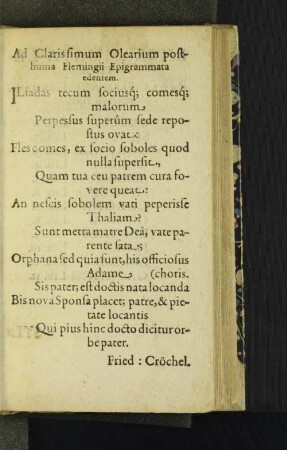 Ad Clarissimum Olearium post-
huma Flemingii Epigrammata
edentem.
ILiadas tecum sociusq́; comesq́;
malorum
Perpessus superûm sede repo-
stus ovat:
Fles comes, ex socio soboles quod
nulla supersit,
Quam tua ceu patrem cura fo-
vere queat:
An nescis sobolem vati peperisse
Thaliam?
Sunt metra matre Deâ; vate pa-
rente sata;
Orphana sed quia sunt, his officiosus
Adame (choris.
Sis pater; est doctis nata locanda
Bis nova Sponsa placet; patre, & pie-
tate locantis
Qui pius hinc docto dicitur or-
be pater.
Fried: Cröchel.